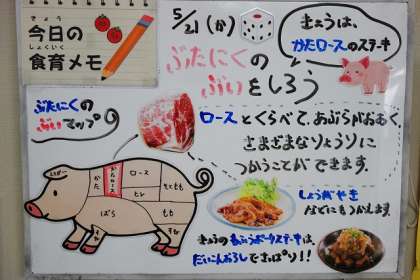 きょう
今日の
しょくいく
食育メモ
5/21(か)
ぶたにくの
ぶいをしろう
きょうは、
かたロースのステーキ
ぶたにくの
ぶいマップ
ロースとくらべて、あぶらがおおく、
さまざまなりょうりに
つかうことができます。
かた
かたロース
ロース
ヒレ
ばら
もも
そともも
しょうがやき
などにもつかえます。
きょうの
ポークステーキは、
だいこんおろしでさっぱり!!